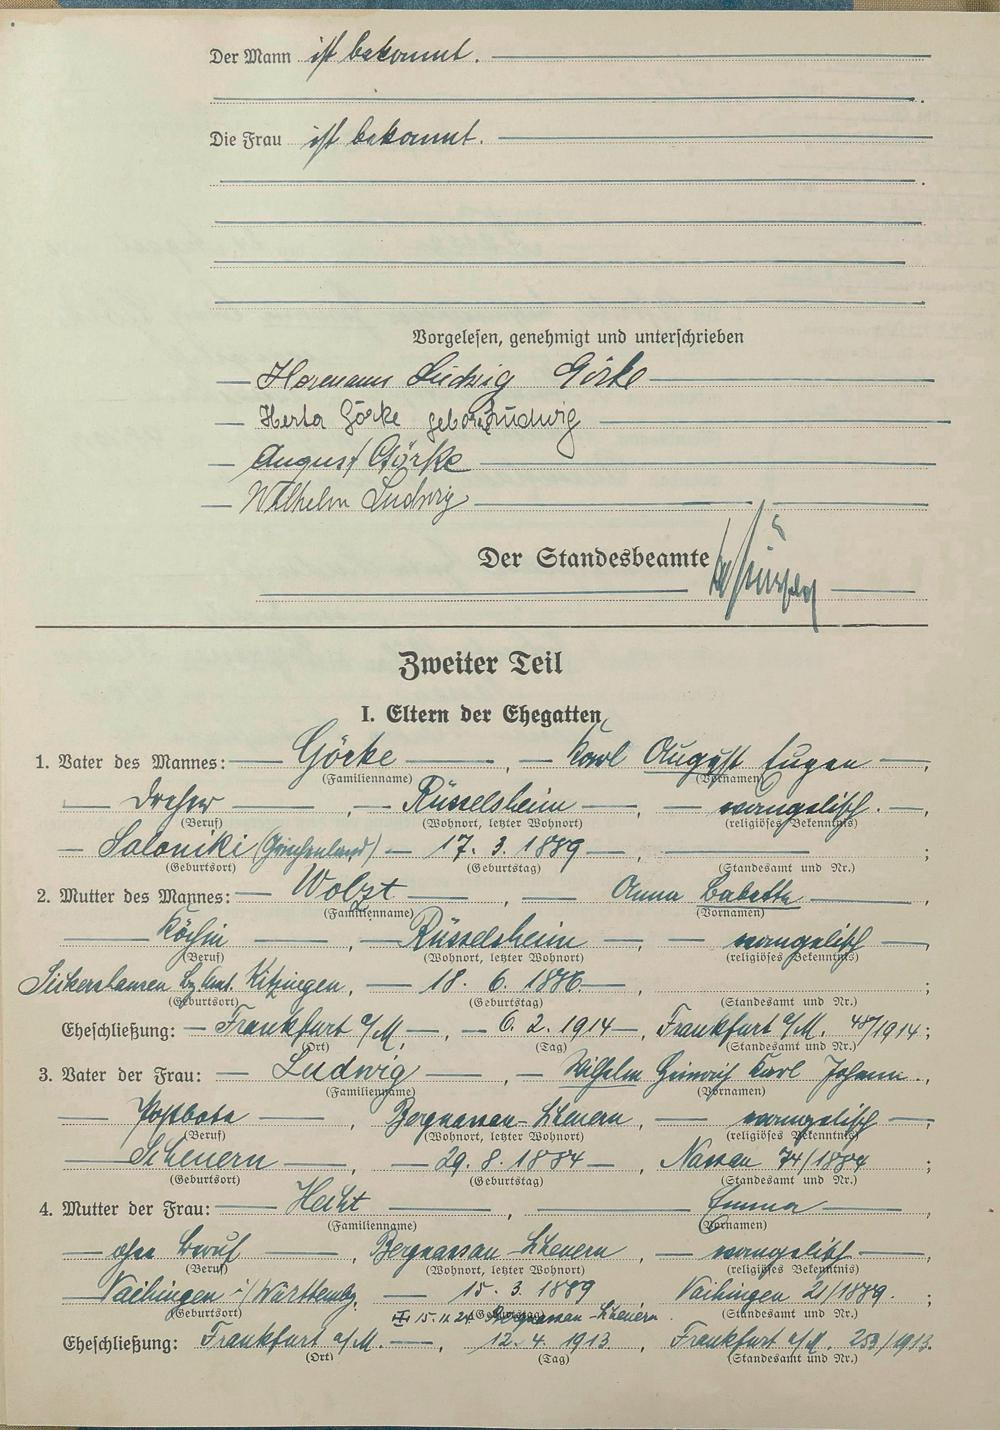 Der Mann ist bekannt.
Die Frau ist bekannt.
Vorgelesen, genehmigt und unterschrieben
Hermann Ludwig Görke
Herta Görke geborne Ludwig
August Görke
Wilhelm Ludwig
Der Standesbeamte
Zweiter Teil
I. Eltern der Ehegatten
1. Vater des Mannes: Görke, Karl August Eugen,
(Familienname) (Vornamen)
Dreher, Rüsselsheim, evangelisch.,
(Beruf) (Wohnort, letzter Wohnort) (religiöses Bekenntnis)
Saloniki (Griechenland) 17. 3. 1889, ;
(Geburtsort) (Geburtstag) (Standesamt und Nr.)
2. Mutter des Mannes: Anna Babette,
(Familienname) (Vornamen)
Köchin, Rüsselsheim, evangelisch,
(Beruf) (Wohnort, letzter Wohnort) (religiöses Bekenntnis)
Kitzingen, 18. 6. 1886, ;
(Geburtsort) (Geburtstag) (Standesamt und Nr.)
Eheschließung: Frankfurt a/M., 6. 2. 1914, Frankfurt a/M. 48/1914;
(Ort) (Tag) (Standesamt und Nr.)
3. Vater der Frau: Ludwig, Wilhelm Heinrich Karl Johann.,
(Familienname) (Vornamen)
Postbote, Bergnassau-Scheuern, evangelisch,
(Beruf) (Wohnort, letzter Wohnort) (religiöses Bekenntnis)
Scheuern, 29. 8. 1884, Nassau 74/1884;
(Geburtsort) (Geburtstag) (Standesamt und Nr.)
4. Mutter der Frau: Hecht, Emma,
(Familienname) (Vornamen)
ohne Beruf, Bergnassau-Scheuern, evangelisch,
(Beruf) (Wohnort, letzter Wohnort) (religiöses Bekenntnis)
Vaihingen i/Württembg. 15. 3. 1889 Vaihingen 21/1889. ;
(Geburtsort) (Geburtstag) (Standesamt und Nr.)
15. 11. 24 Bergnassau-Scheuern
Eheschließung: Frankfurt a/M., 12. 4. 1913, Frankfurt a/M. 253/1913.
(Ort) (Tag) (Standesamt und Nr.)